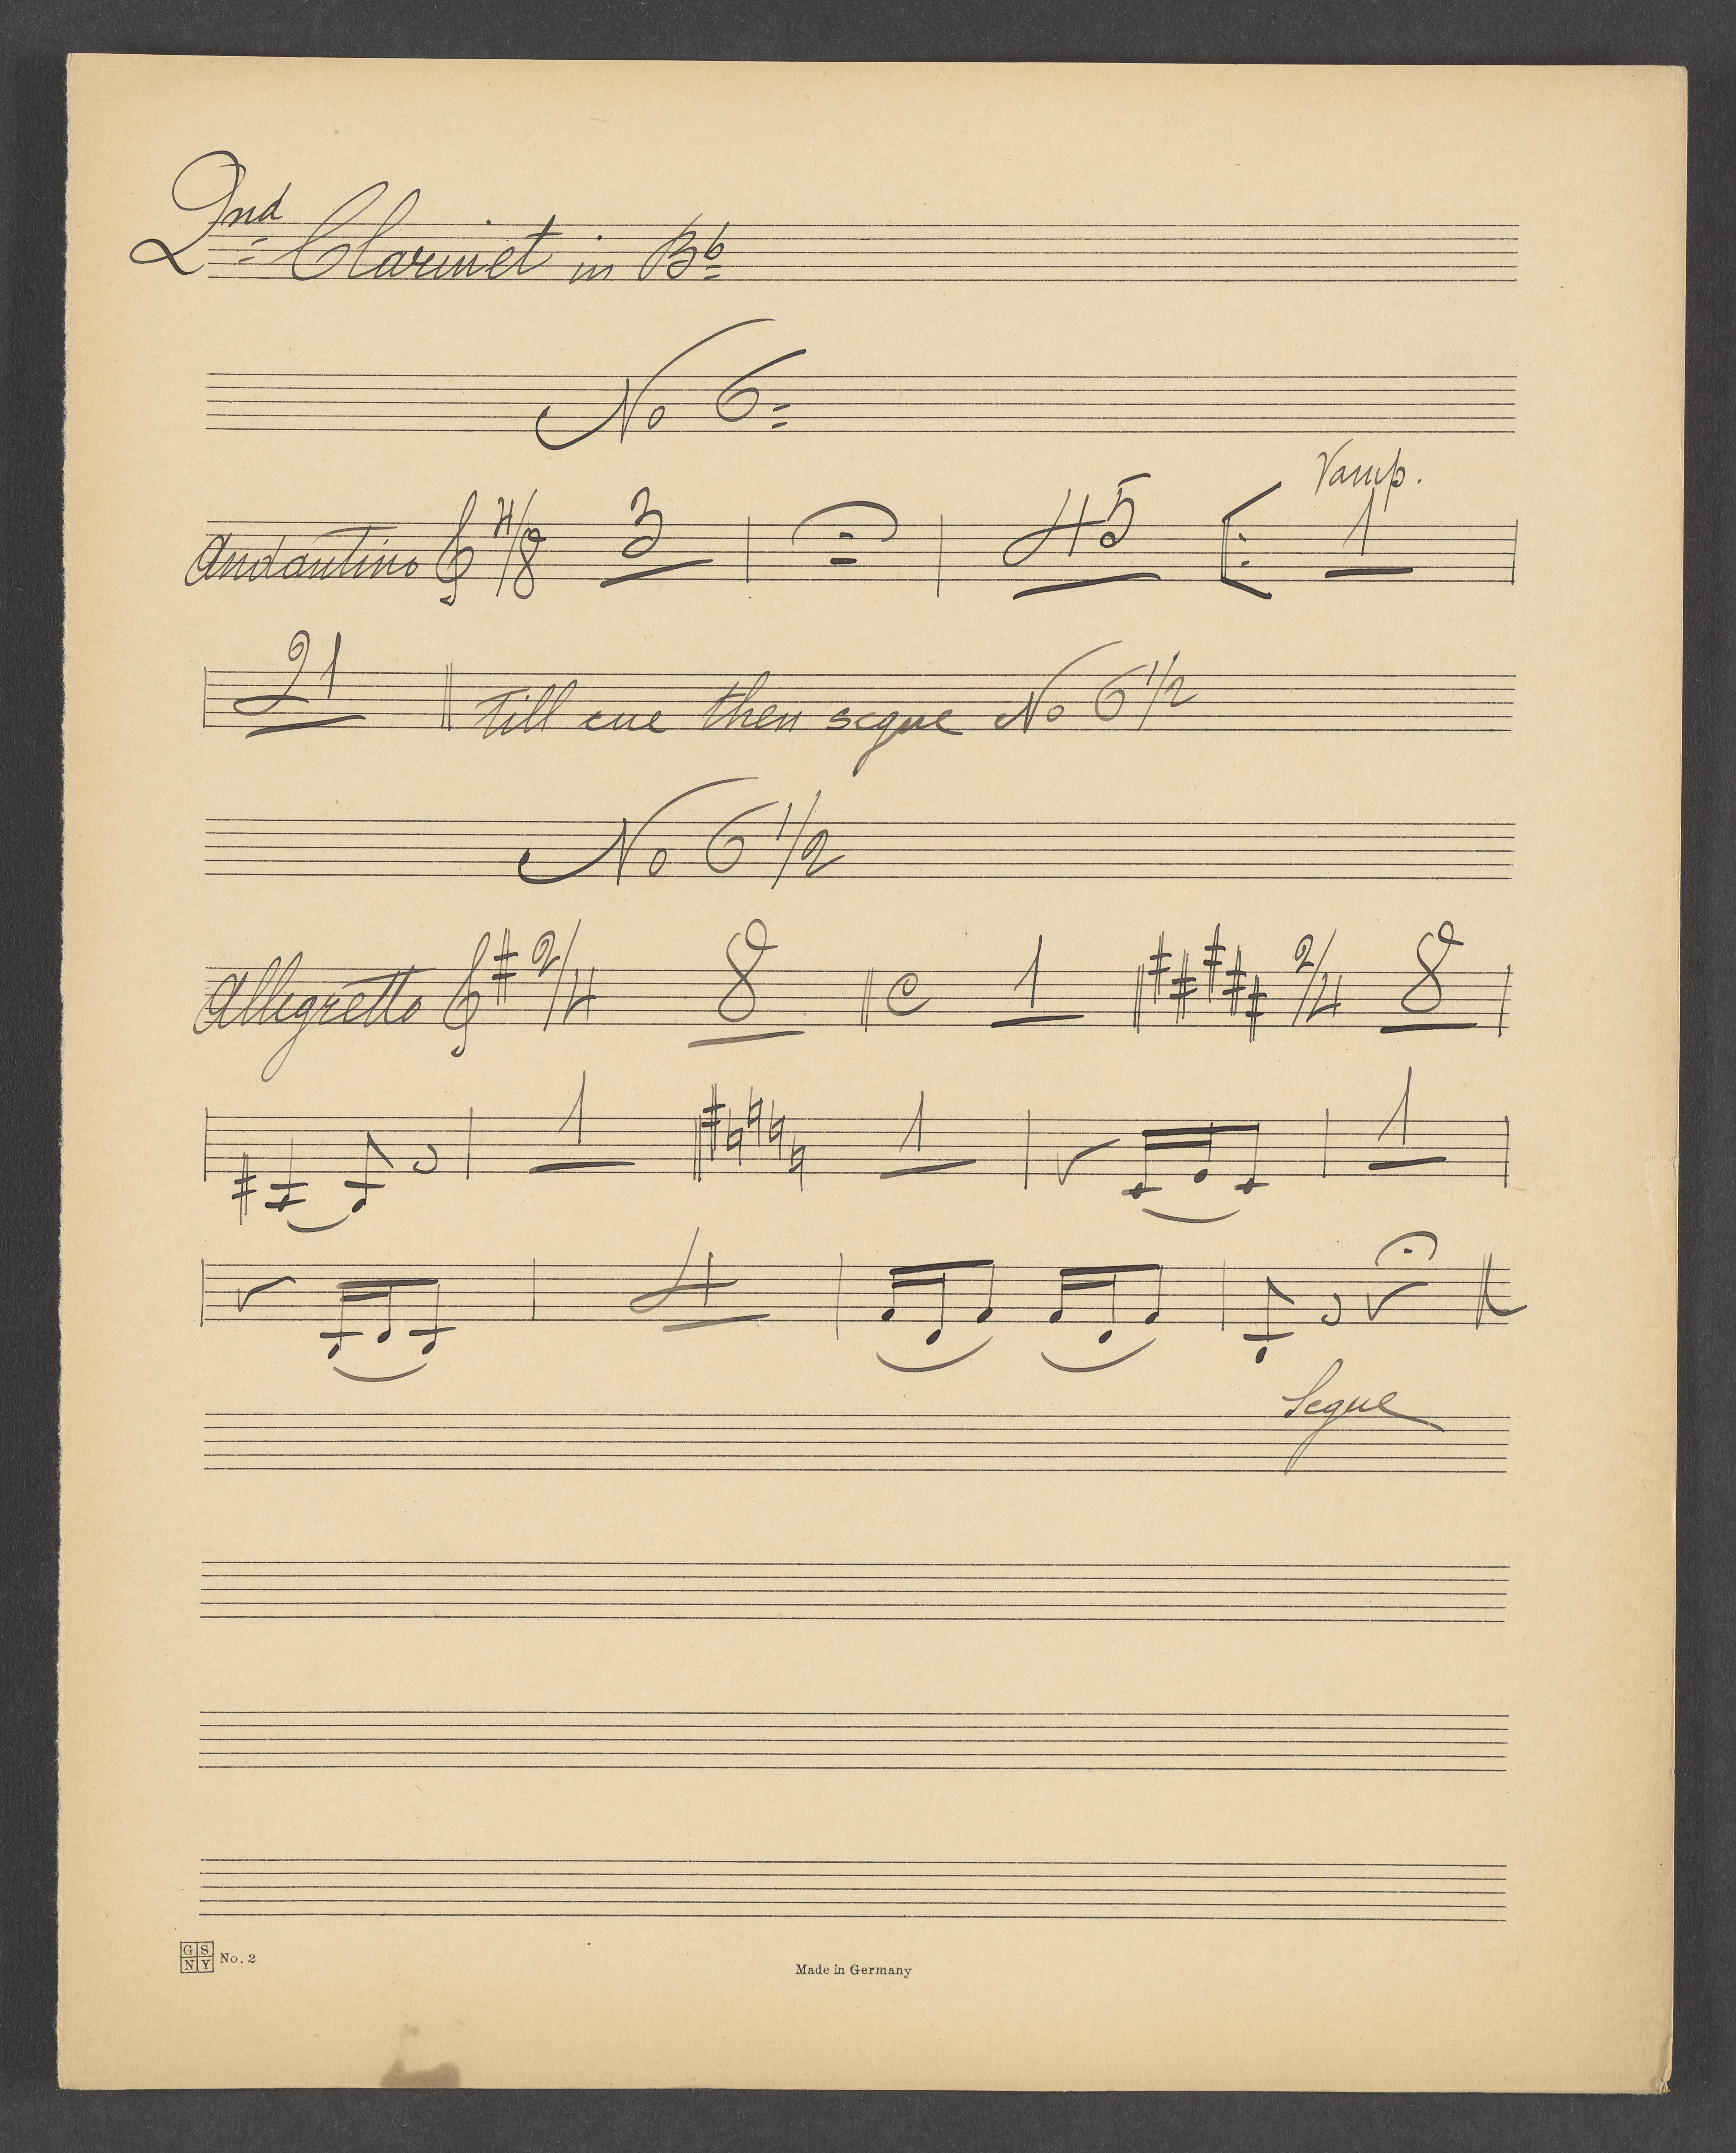 2nd Clarinet in Bb
No 6
Vamp.
Andantino 4/8 3 45 1
21 Till cue then segue No 6 1/2
No 6 1/2
Allegretto 2/4 8 C 1 2/4 8
1 1 1
4
Segue
GS
NY No. 2
Made in Germany